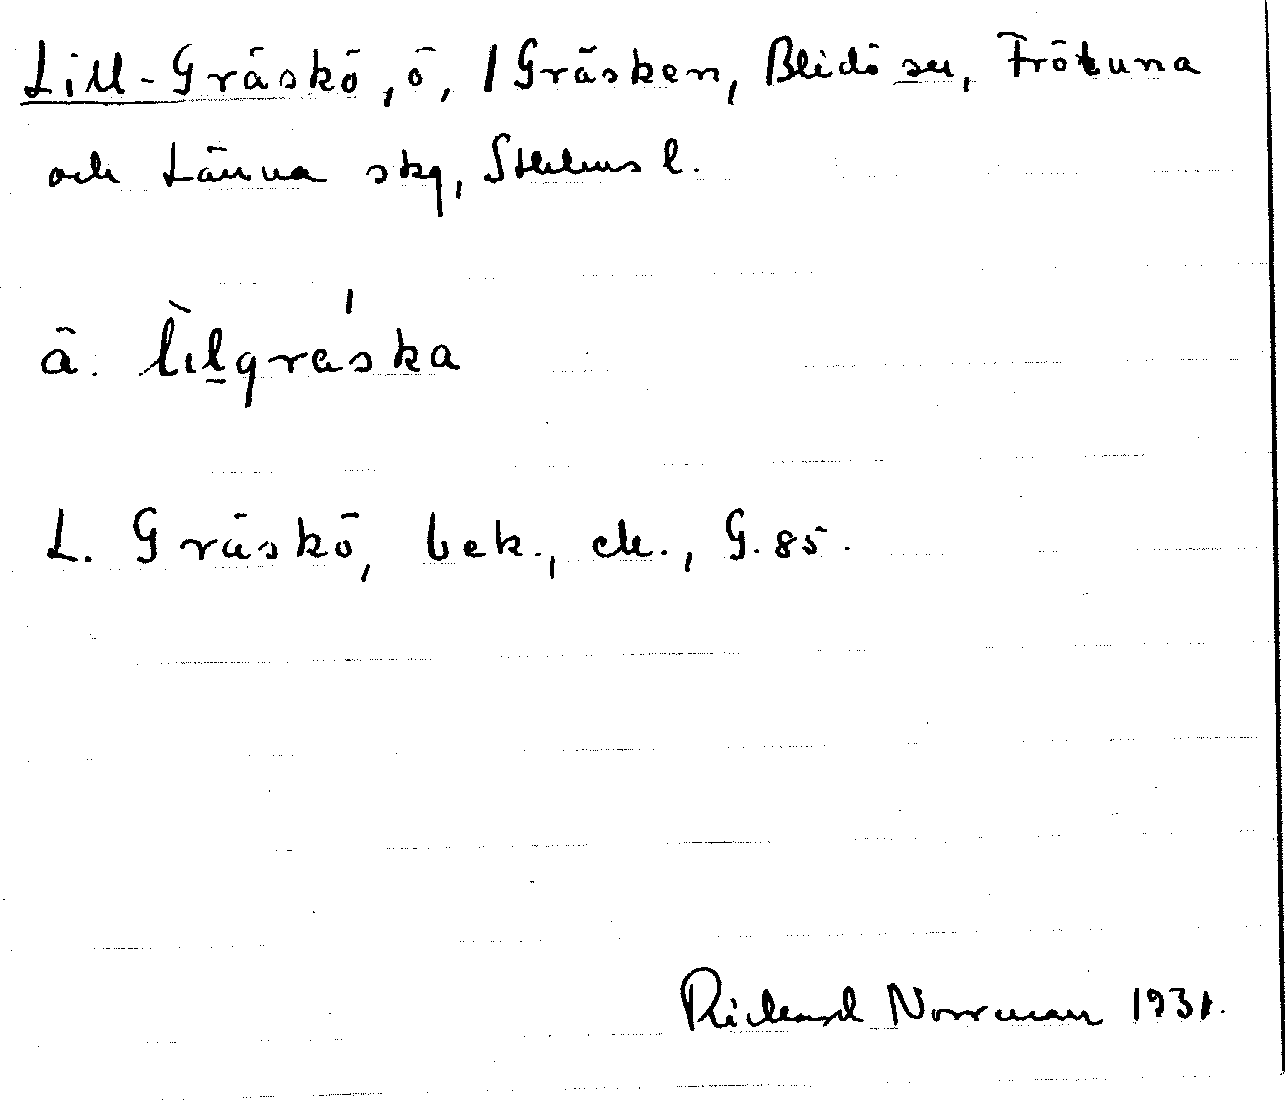 Lill-Gräskö, ö, / Gräsken, Blidö sn, Frötuna
och Länna skg, Sthlms l.
ä. lìlgrés̍ka
L. Gräskö, bek., ek., G. 85.
Rickard Norrman 1931.